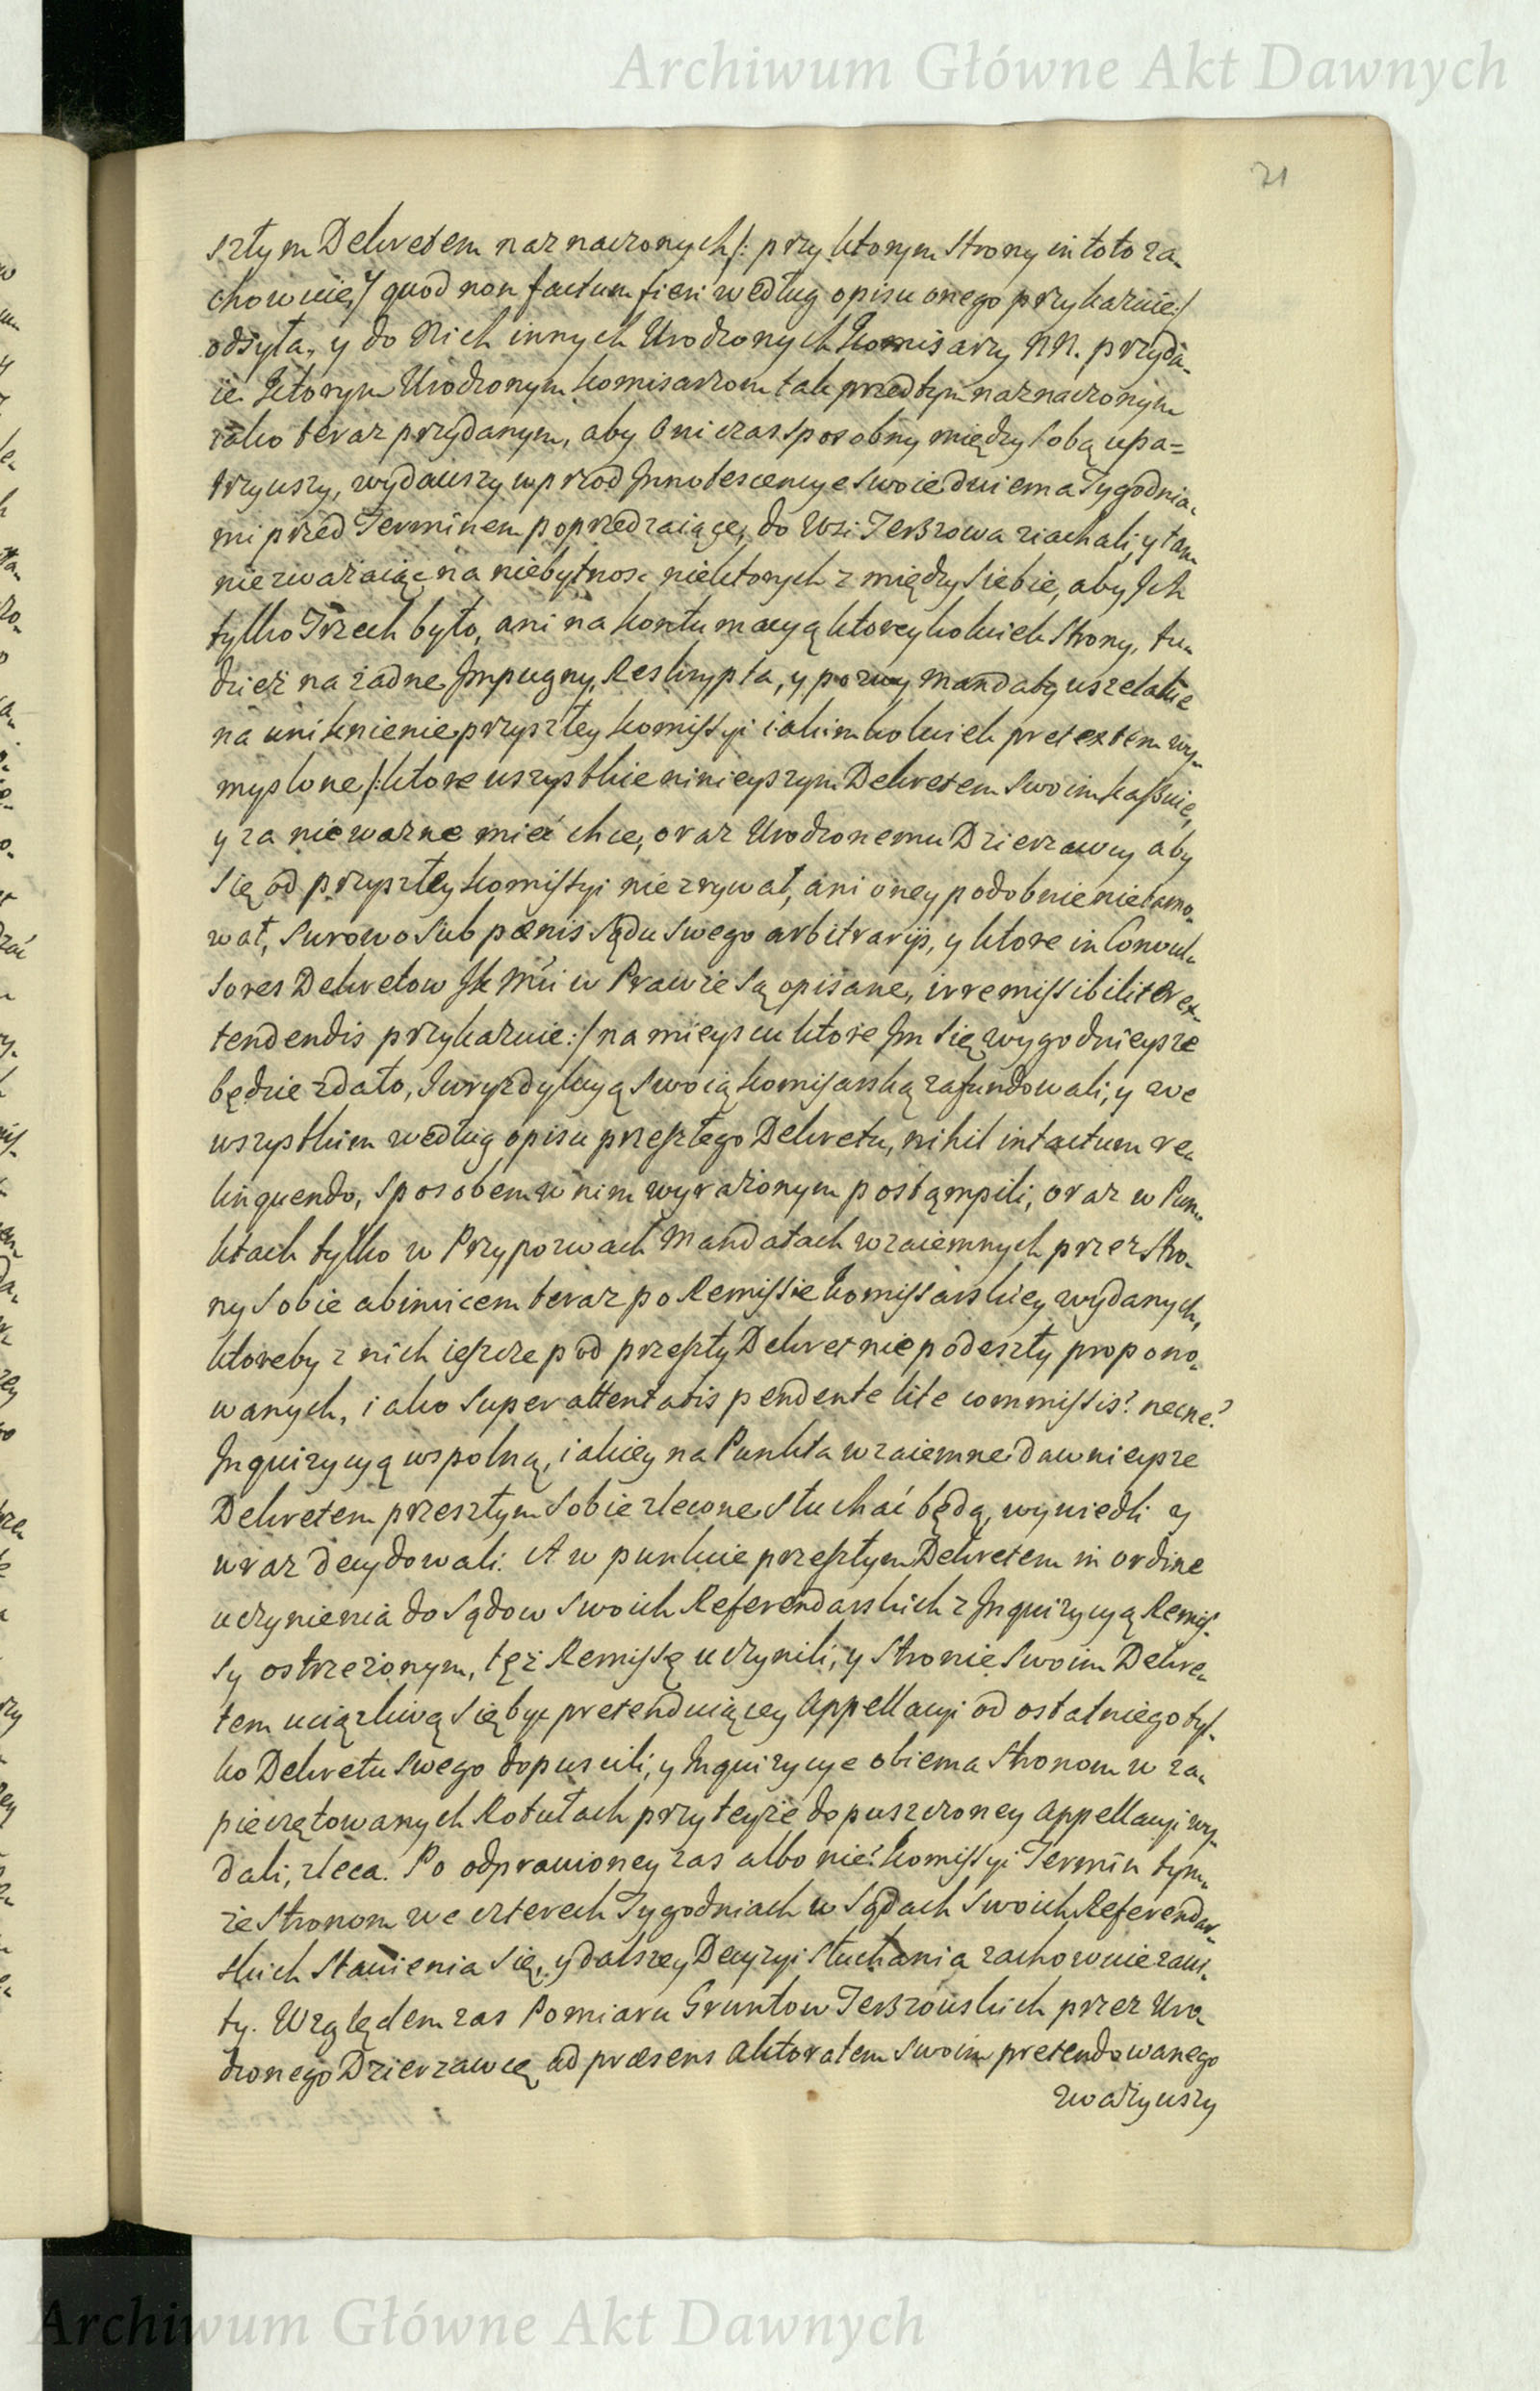 Archiwum Główne Akt Dawnych
21
szłym Dekretem naznaczonych /: przy ktorym Strony in toto za-
chowuie, y quod non factum fieri według opisu onego przykazuie :/
odsyła, y do Nich innych Urodzonych Komisarzy NN. przyda-
ie. Ktorym Urodzonym Komisarzom tak przedtym naznaczonym
iako teraz przydanym, aby Oni czas sposobny między sobą upa=
trzywszy, wydawszy wprzod Innotescencye swoie dwiema Tygodnia-
mi przed Terminem poprzedzaiące, do Wsi Terszowa ziachali, y tam
nie zwazaiąc na niebytnosc niektorych z między siebie, aby Ich
tylko Trzech było, ani na kontumacyą ktoreykolwiek Strony, tu-
dzież na żadne Impugny, Reskrypta, y pozwy Mandaty wszelakie
na uniknienie przyszłey Komissyi iakimkolwiek pretextem wy-
myslone /: ktore wszystkie ninieyszym Dekretem swoim kassuie,
y za niewazne mieć chce, oraz Urodzonemu Dzierzawcy aby
się od przyszłey Komissyi nie zrywał, ani oney podobnie nie tamo-
wał, surowo sub pænis Sądu swego arbitrarijs, y ktore in Convul-
sores Dekretow JK Mci w Prawie są opisane, irremissibiliter ex-
tendendis przykazuie :/ na mieyscu ktore Im się wygodnieysze
będzie zdało, Juryzdykcyą swoią Komisarską zafundowali, y we
wszystkim według opisu przeszłego Dekretu, nihil intactum re-
linquendo, sposobem w nim wyrażonym postąmpili, oraz w Pun-
ktach tylko w Przypozwach Mandatach wzaiemnych przez Stro-
ny sobie abinvicem teraz po Remissie Komissarskiey wydanych,
ktoreby z nich ieszcze pod przeszły Dekret nie podeszły propono-
wanych, iako super attentatis pendente lite commissis? necne?
Inquizycyą wspolną, iakiey na Punkta wzaiemne dawnieysze
Dekretem przeszłym sobie zlecone słuchać będą, wywiedli y
wraz decydowali. A w punkcie przeszłym Dekretem in ordine
uczynienia do Sądow swoich Referendarskich z Inquizycyą Remis-
sy ostrzeżonym, tęż Remissę uczynili, y Stronie swoim Dekre-
tem uciązliwą się być pretenduiącey Appellacyi od ostatniego tyl-
ko Dekretu swego dopuscili, y Inquizycye obiema Stronom w za-
pieczętowanych Rotułach przy teyże dopuszczoney Appellacyi wy-
dali, zleca. Po odprawioney zas albo nie? Komissyi Termin tym-
że Stronom we czterech Tygodniach w Sądach swoich Referendar-
skich stawienia się, y dalszey Decyzyi słuchania zachowuie zawi-
ty. Względem zas Pomiaru Gruntow Terszowskich przez Uro-
dzonego Dzierzawcę ad præsens Aktoratem swoim pretendowanego
zważywszy
Archiwum Główne Akt Dawnych